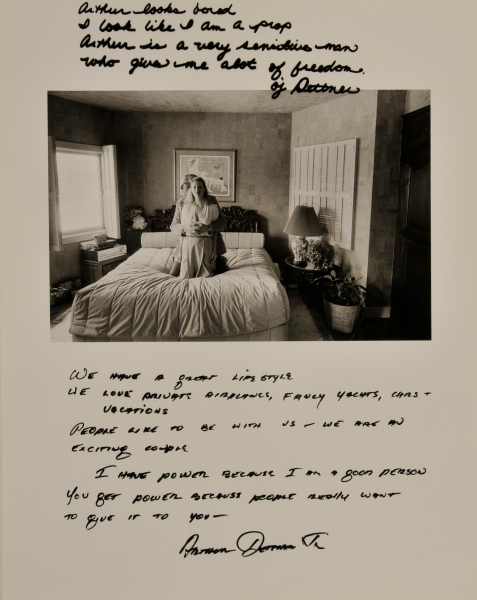 Arthur looks bored
I look like I am a prop
Arthur is a very sensitive man
who gives me alot of freedom.
oj Dottner
WE HAVE A GREAT LIFESTYLE
WE LOVE PRIVATE AIRPLANES, FANCY YACHTS, CARS +
VACATIONS
PEOPLE LIKE TO BE WITH US – WE ARE AN
EXCITING COUPLE
I HAVE POWER BECAUSE I AM A GOOD PERSON
YOU GET POWER BECAUSE PEOPLE REALLY WANT
TO GIVE IT TO YOU –
Arthur Dottner Jr